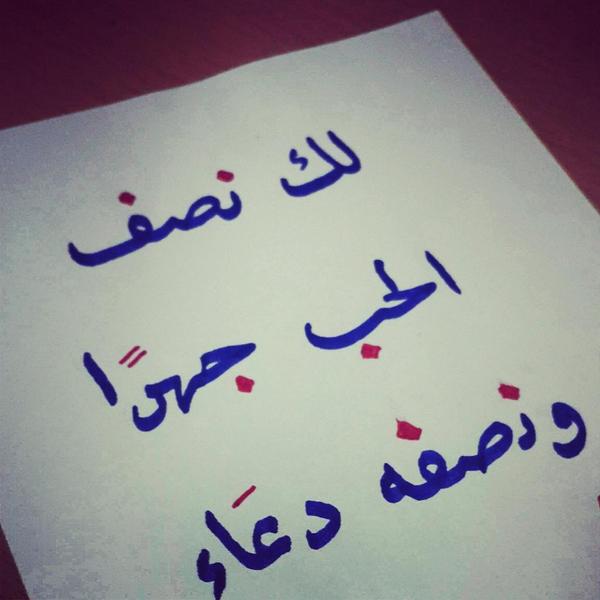 لك نصف
الحب جهرًا
ونصفه دعاء